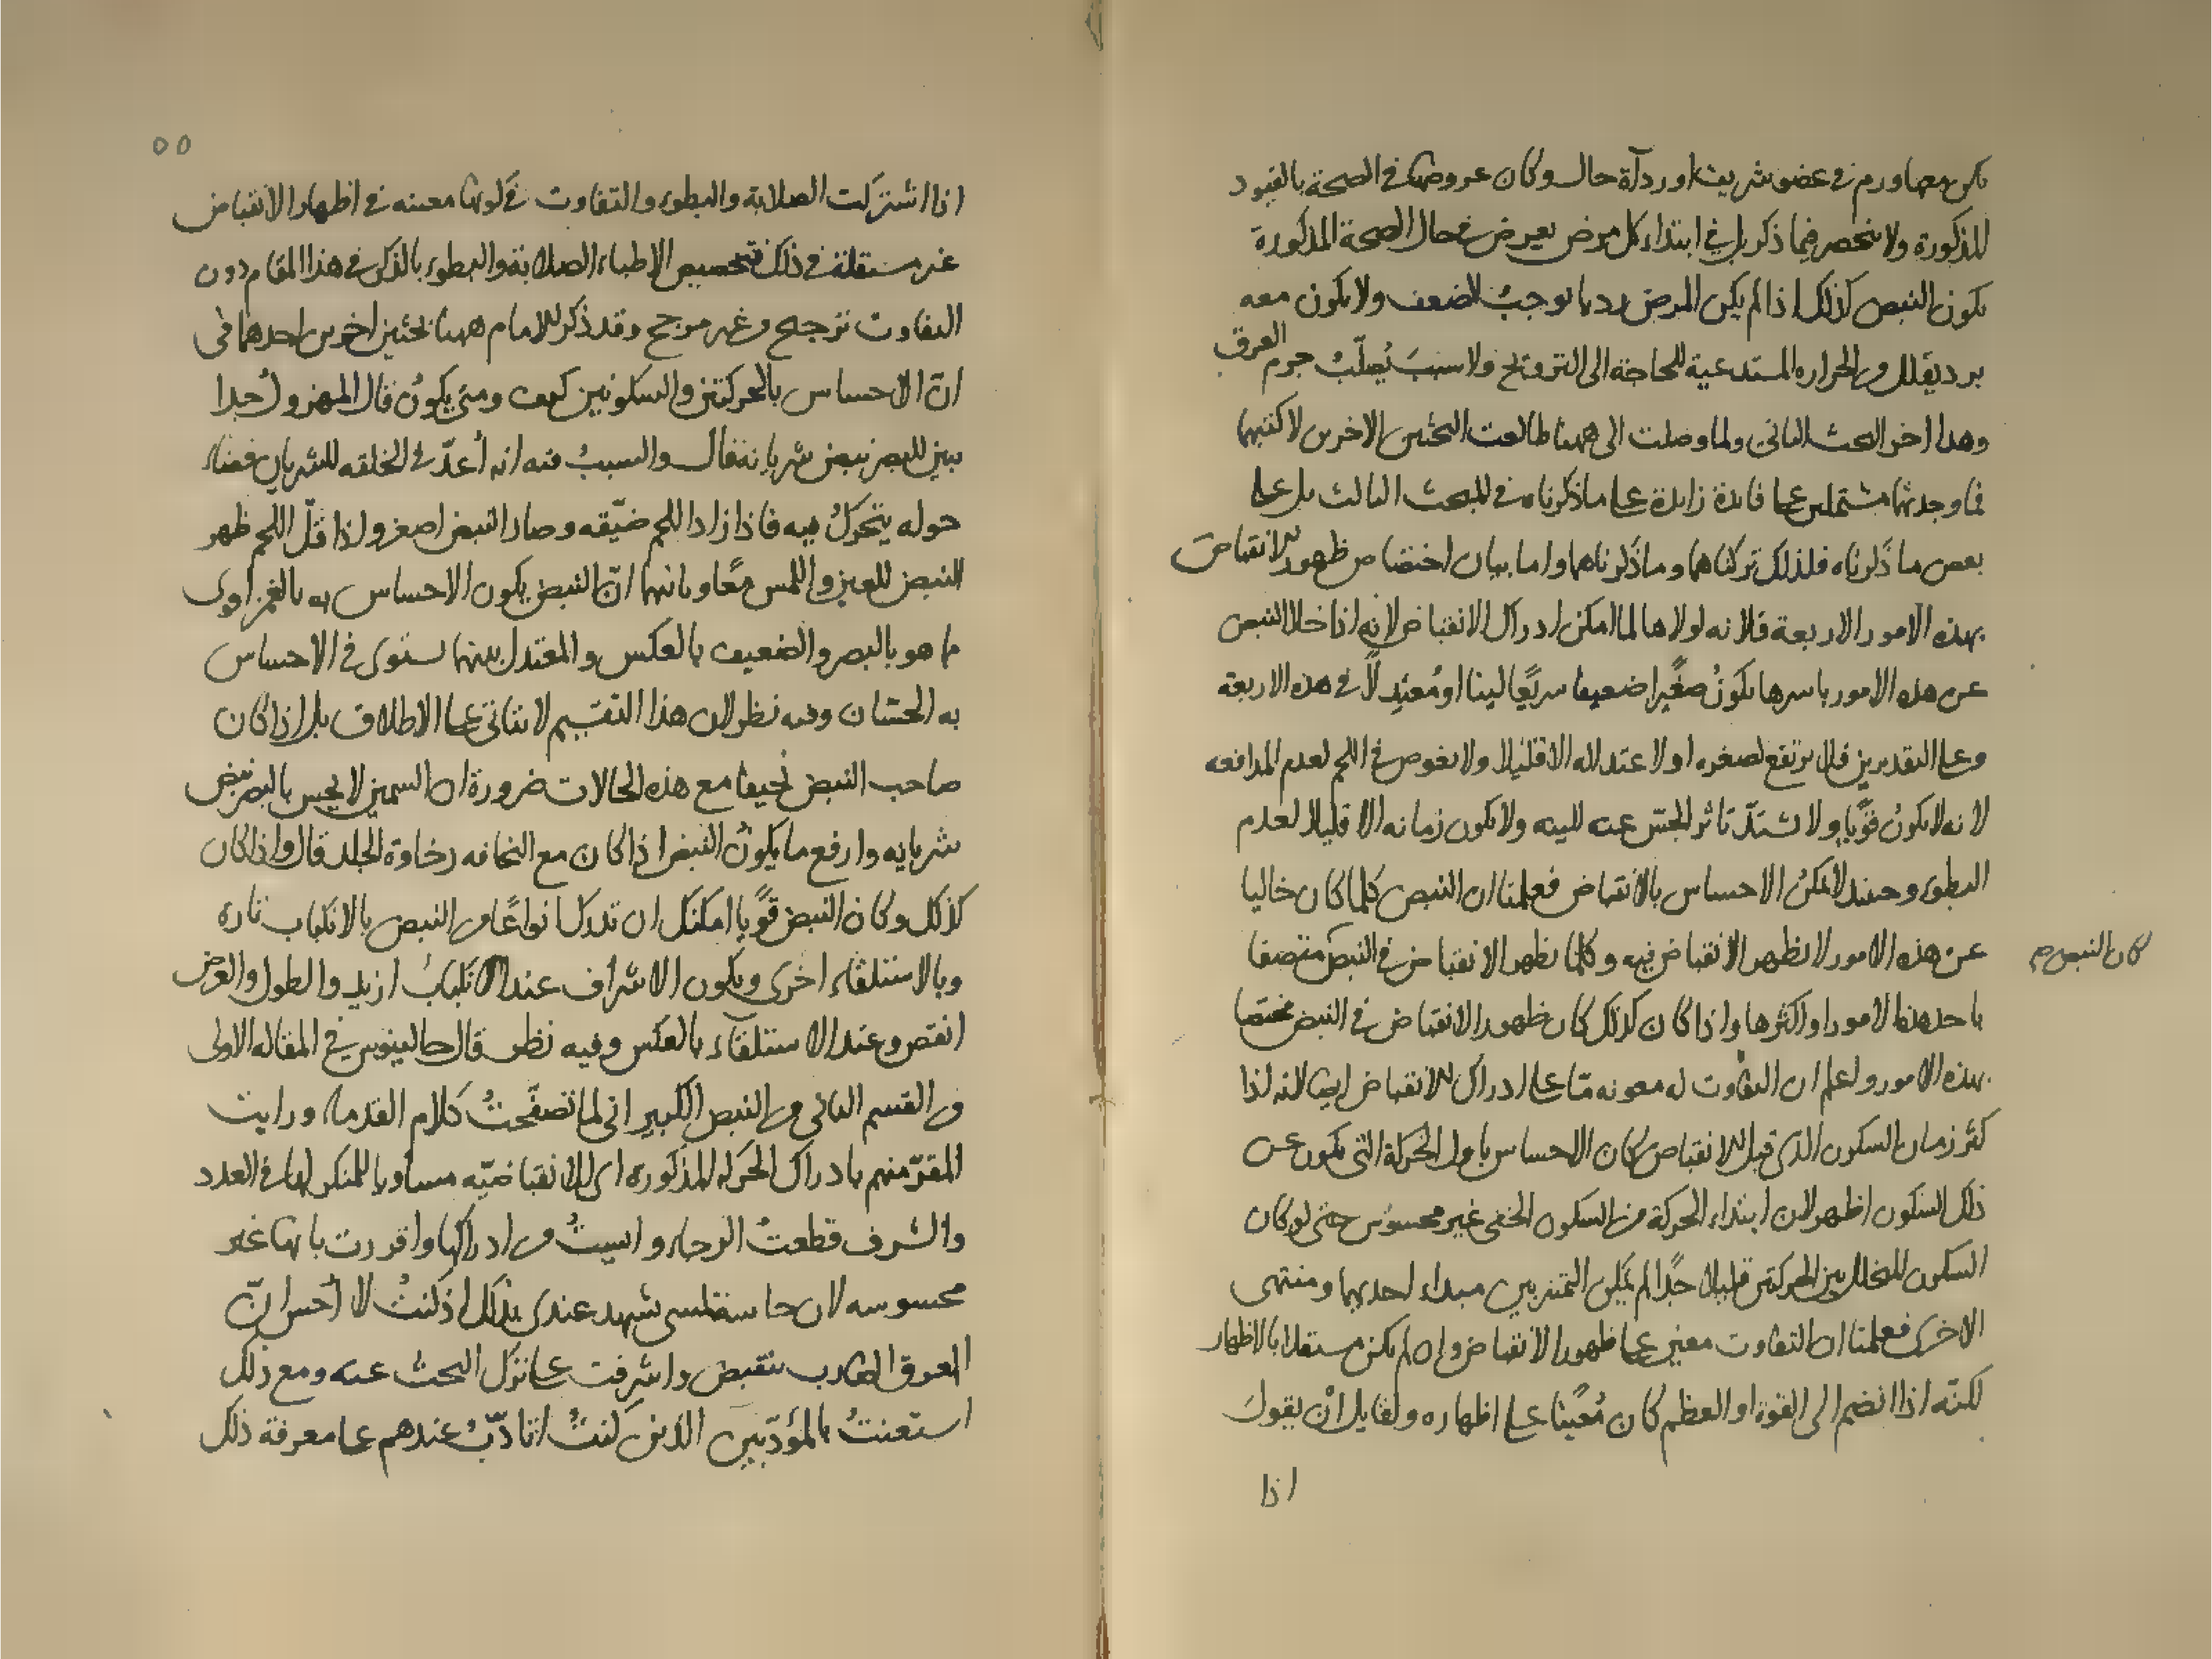 يكن معها ورم في عضو شريف او ردآة حال وكان عروضها في الصحة بالقيود
المذكورة ولا ينحصر فيما ذكر بل في ابتداء كل مرض يعرض في حال الصحة المذكورة
يكون النبض كذلك اذا لم يكن المرض رديا يوجب الضعف ولا يكون معه
برد يقلل من الحراره المستدعية للحاجة الى الترويح ولا سبب يُصلّبُ جرم العرق
وهذا اخر البحث الثاني ولما وصلت الى ههنا طالعت البحثين الاخرين لاكتبهما
فما وجدتهما مشتملين على فايدة زايدة على ما ذكرناه في المبحث الثالث بل على
بعض ما ذكرناه فلذلك تركناهما وما ذكرناهما واما بيان اختصاص ظهور الانقباض
بهذه الامور الاربعة فلانه لولاها لما امكن ادراك الانقباض لانه اذا خلا النبض
عن هذه الامور باسرها يكونُ صغيرًا ضعيفا سريعًا لينا او مُعتدِلًا في هذه الاربعة
وعلى التقديرين فلا يرتفع لصغره او لاعتداله الا قليلا ولا يغوص في اللحم لعدم المدافعه
لانه لا يكونُ قويًّا ولا يشتدّ تاثر المجسّ عنه للينه ولا يكون زمانه الا قليلا لعدم
البطوء وحينئذ لا يمكنُ الاحساس بالانقباض فعلمنا ان النبض كلما كان خاليا
عن هذه الامور لا يظهر الانقباض فيه وكلما يظهر الانقباض في النبض متصفا
كان النبض صح
باحد هذه الامور او اكثرها واذا كان كذلك كان ظهور الانقباض في النبض مختصا
بهذه الامور واعلم ان التفاوت له معونه مّا على ادراك الانقباض ايضا لانه اذا
كثر زمان السكون الذي قبل الانقباض كان الاحساس باول الحركة التي تكون عن
ذلك السكون اظهر لان ابتداء الحركة من السكون الخفي غير محسوس حتى لو كان
السكون المتخلل بين الحركتين قليلا جدًّا لم يمكن التمييز بين مبداء احديهما ومنتهى
الاخرى فعلمنا ان التفاوت معين على ظهور الانقباض وان لم يكن مستقلا بالاظهار
لكنّه اذا انضم الى القوة او العظم كان مُعينًا على اظهاره ولقايل انْ يقول
اذا
٥٥
اذا اشتركت الصلابة والبطوء والتفاوت في كونها معينه في اظهار الانقباض
غير مستقلة في ذلك فتخصيص الاطباء الصلابة والبطوء بالذكر في هذا المقام دون
التفاوت ترجيح من غير مرجح وقد ذكر الامام ههنا بحثين اخرين احدهما في
انّ الاحساس بالحركتين والسكونين كيف ومتى يكونُ قال المهزول جدا
يبين للبصر نبض شريانه فقال والسببُ فيه انه أُعدّ في الخلقه للشريان فضاء
حوله يتحركُ فيه فاذا زاد اللحم ضيّقه وصار النبض اصغر واذا قلّ اللحم ظهر
النبض للعين واللمس معًا وثانيهما انّ النبض يكون الاحساس به بالغمز اقوى
مما هو بالبصر والضعيف بالعكس والمعتدل بينهما يستوى في الاحساس
به الحسّان وفيه نظر لان هذا التقسيم لا يتاتى على الاطلاق بل اذا كان
صاحب النبض نحيفا مع هذه الحالات ضرورة ان السمين لا يحس بالبصر نبض
شريانه وارفع ما يكونُ النبض اذا كان مع النحافه رخاوة الجلد قال واذا كان
كذلك وكان النبض قويًّا امكنك ان تدرك انواعًا من النبض بالانكباب تاره
وبالاستلقاء اخرى ويكون الاشراف عند الانكباب ازيد والطول والعرض
انقص وعند الاستلقاء بالعكس وفيه نظر قال جالينوس في المقاله الاولى
من القسم الثاني من النبض الكبير اني لما تصفّحتُ كلام القدماء ورايت
المقرّ منهم بادراك الحركه المذكوره اى الانقباضيّه مساويا للمنكر لها في العدد
والشرف قطعتُ الرجاء وايستُ من ادراكها واقررت بانها غير
محسوسه لان حاسة لمسى شهد عندى بذلك اذ كنتُ لا أحس انّ
العرق الضارب ينقبض واشرفت على ترك البحث عنه ومع ذلك
استعنتُ بالمؤدّبين الذين كنتُ اتادّبُ عندهم على معرفة ذلك